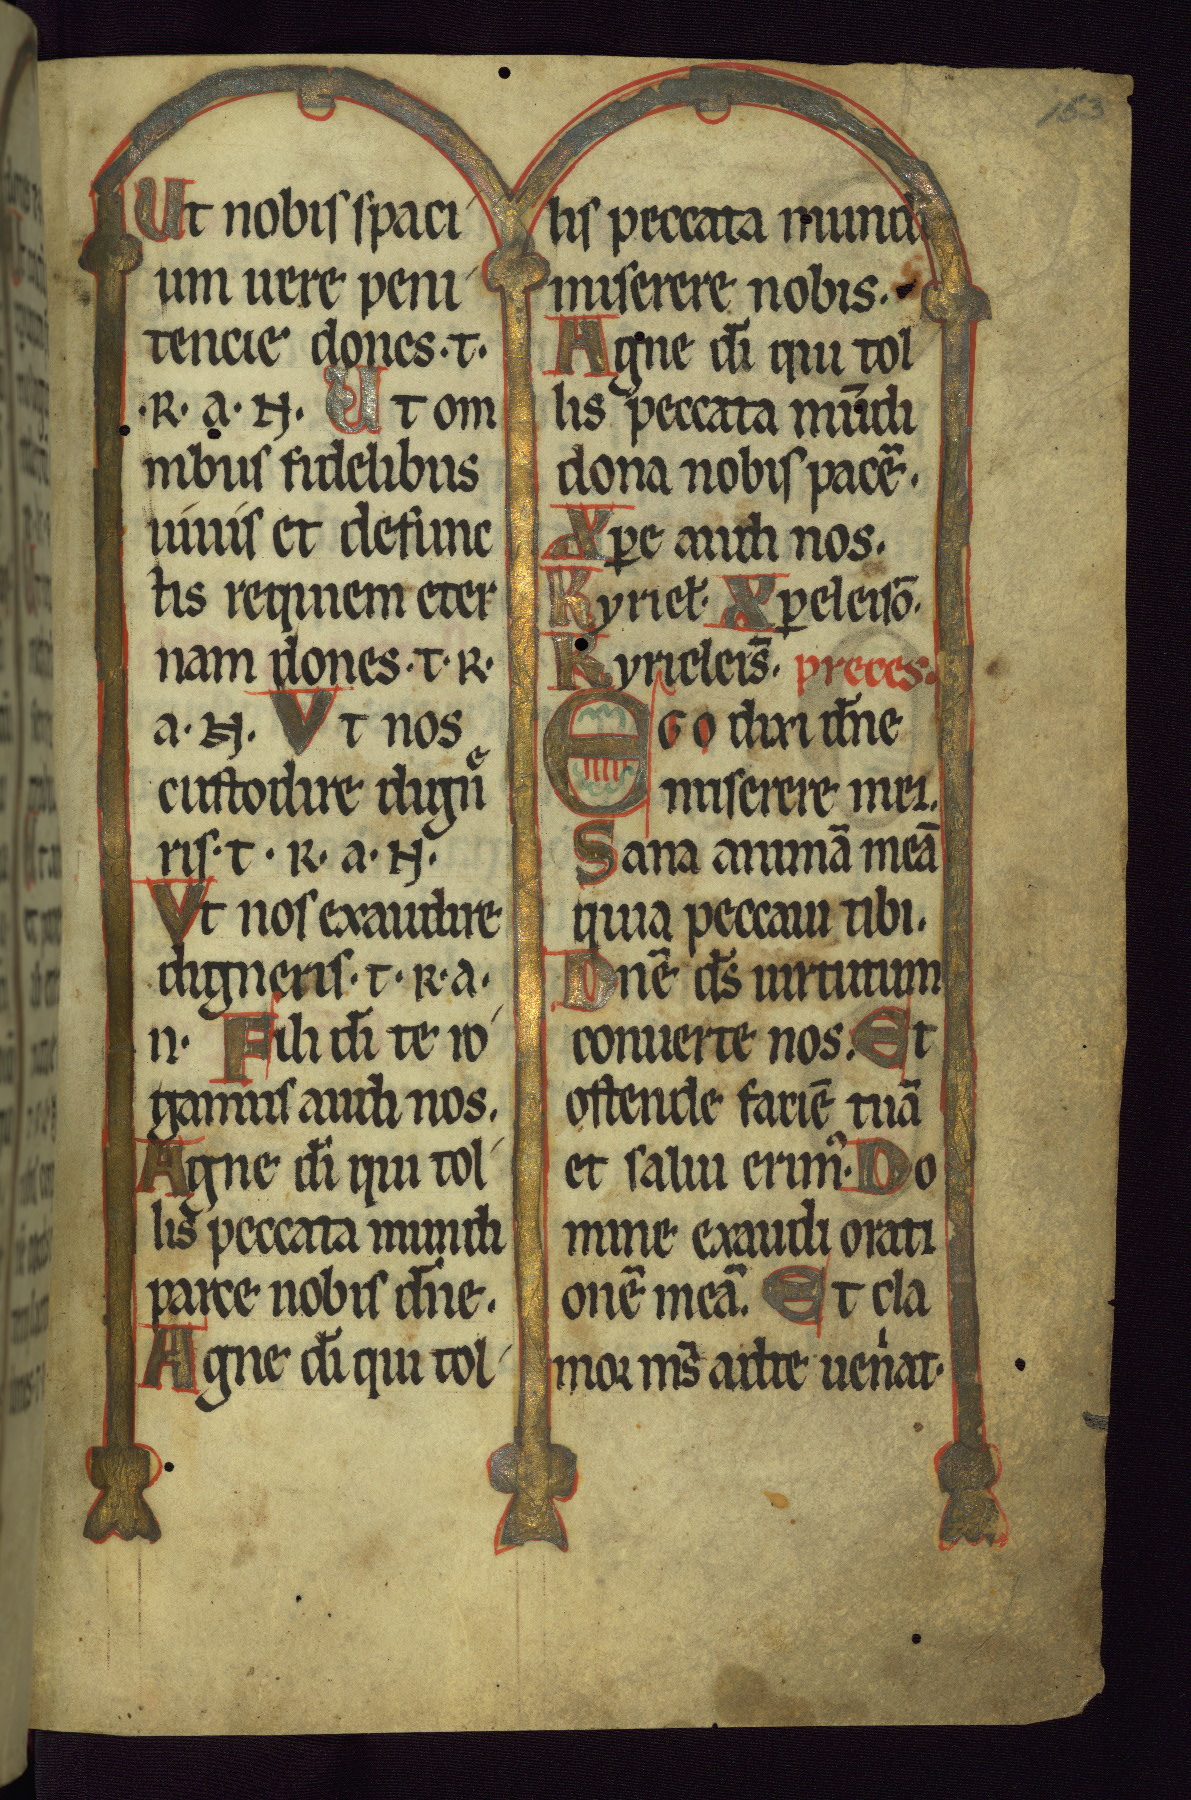 153
Ut nobis spaci
um uere peni
tencie dones. t.
.R. a. N. Ut om
nibus fidelibus
uiuis et defunc
tis requiem eter
nam dones. t. R.
a. N. Vt nos
custodire dignͤ
ris. t. R. a. N.
Vt nos exaudire
digneris. t. R. a.
n. Fili dī te ro
gamus audi nos.
Agne dī qui tol
lis peccata mundi
parce nobis dn̄e.
Agne dī qui tol
lis peccata mundi
miserere nobis.
Agne dī qui tol
lis peccata mūdi
dona nobis pacē.
Xpe audi nos.
Kyriel̵. Xpeleisō.
Kyrieleis̄. preces.
Ego dixi dn̄e
miserere mei.
Sana animā meā
quia peccaui tibi.
Dnē ds̄ uirtutum
conuerte nos. Et
ostende faciē tuā
et salui erimꝰ. Do
mine exaudi orati
onē meā. Et cla
mor ms̄ ad te ueniat.